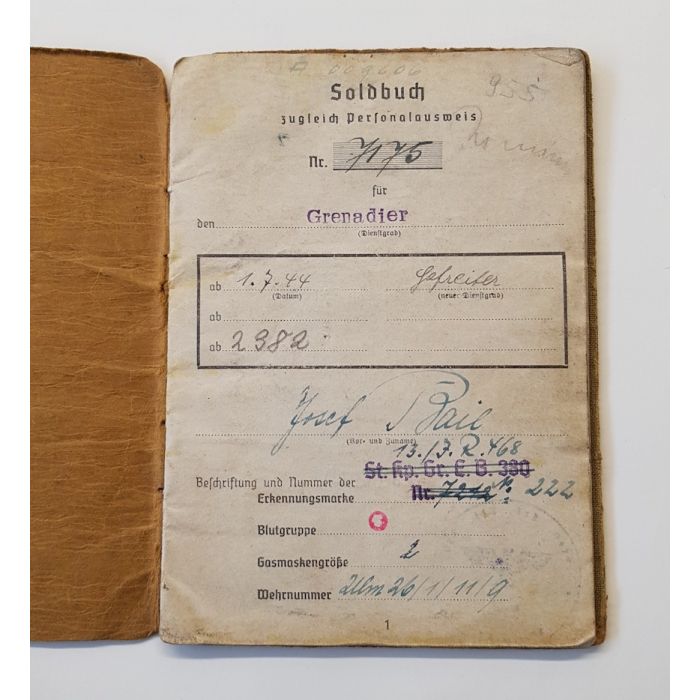 A 009606
Soldbuch
955
zugleich Personalausweis
Nr. 7175
für
den Grenadier
(Dienstgrad)
ab 1.7.44 Gefreiter
(Datum) (neuer Dienstgrad)
ab
ab 2382
Josef
(Vor- und Zuname)
13./J.R.468
St. Kp. Gr. E. B. 380
Beschriftung und Nummer der
Erkennungsmarke Nr. 7212 N. 222
Blutgruppe O
Gasmaskengröße 2
Wehrnummer Ulm 26/1/11/9
1